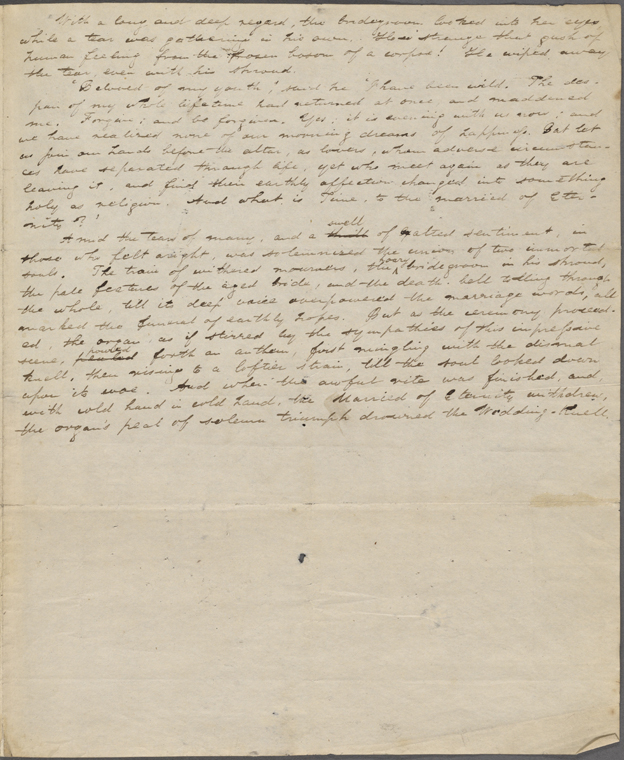 With a long and deep regard, the bridegroom looked into her eyes
while a tear was gathering in his own. How strange that gush of
human feeling from the frozen bosom of a corpse! He wiped away
the tear, even with his shroud.
"Beloved of my youth," said he "I have been wild. The des-
pair of my whole lifetime had returned at once, and maddened
me. Forgive; and be forgiven. Yes; it is evening with us now; and
we have realized none of our morning dreams of happiness. But let
us join our hands before the altar, as lovers, whom adverse circumstan-
ces have separated through life, yet who meet again as they are
leaving it, and find their earthly affection changed into something
holy as religion. And what is Time, to the married of Eter-
nity?"
swell
Amid the tears of many, and a of exalted sentiment, in
those who felt aright, was solemnized the union of two immortal
souls. The train of withered mourners, the hoary bridegroom in his shroud,
the pale features of the aged bride, and the death-bell tolling through
the whole, till its deep voice overpowered the marriage words, all
marked the funeral of earthly hopes. But as the ceremony proceed-
ed, the organ, as if stirred by the sympathies of this impressive
scene, poured forth an anthem, first mingling with the dismal
knell, then rising to a loftier strain, till the soul looked down
upon its woe. And when the awful rite was finished, and,
with cold hand in cold hand, the Married of Eternity withdrew,
the organ's peal of solemn triumph drowned the Wedding-Knell.